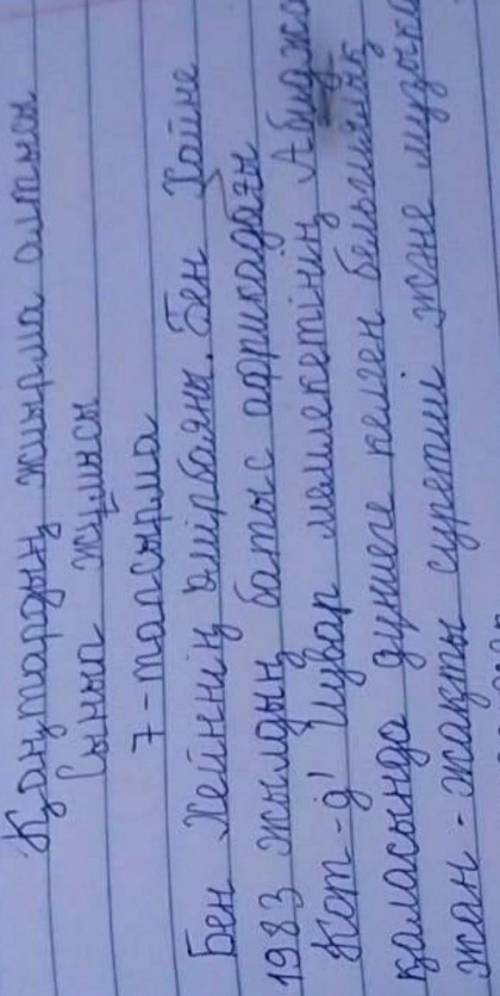 Қаңтардың жиырма алтысы
Сынып жұмысы
7-тапсырма
Бен Хейннің өмірбаяны. Бен Хейне
1983 жылдың батыс африкадағы
Кот-д' Ивуар мемлекетінің Абиджа
қаласында дүниеге келген бельгиялық
жан-жақты суретші және музыка